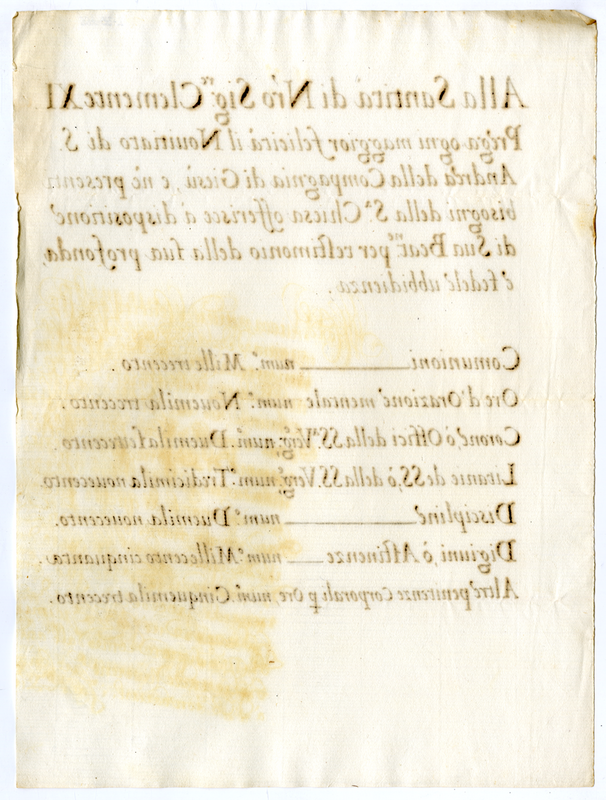 Alla Santità di Nr̃o Sig.re Clemente XI
Préga ogni maggior felicità il Nouitiato di S.
Andréa della Compagnia di Giesù, e né presenti
bisogni della S.a Chiesa offerisce à dispositioné
di Sua Beat.ne per testimonio della sua profonda,
é fedelé ubbidienza.
Comunioni ______ num.o Mille trecento.
Ore d'Orazioné mentale num.o Nouemila trecento.
Coroné, ò Offici della SS.a Verg. num.o Duemila settecento
Litanie de SS, ò della SS. Verg. num.o Tredicimila nouecento.
Discipliné ______ num.o Duemila nouecento.
Digiuni ò, Astinenze ___ num.o Millecento cinquanta.
Altré penitenze Corporali p Ore, num.o Cinquemila trecento.